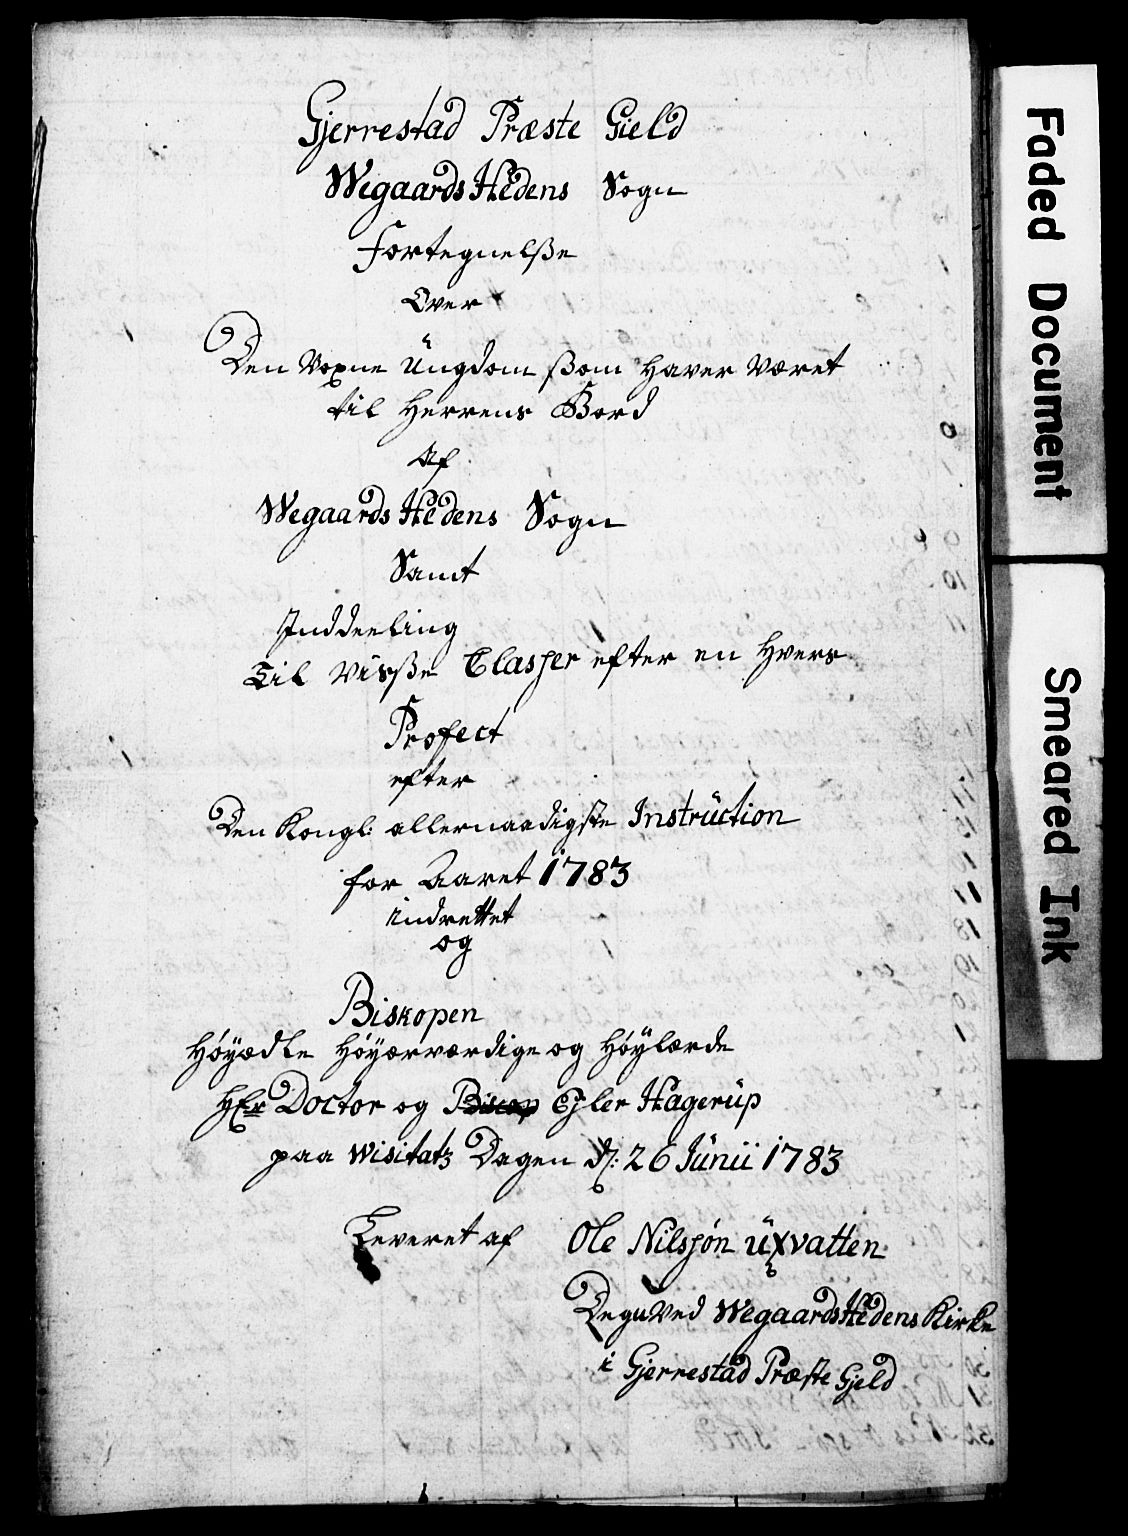 Gjerrestad Præste Gield
Wegaards Hedens Sogn
Fortegnelße
Over
Den Voxne Üngdom ßom haver været
til Herrens Bord
Af
Wegaards Hedens Sogn
Samt
Inddeeling
Til visße Classer efter en hvers
Profect
efter
Den Kongl: allernaadigste Instrüction
for Aaret 1783
indrettet
og
Biskopen
Høÿædle Høÿærværdige og Høÿlærde
HEr Doctor og Biscop Ejler Hagerüp
paa Wisitatz Dagen d: 26 Jünii 1783
Leveret af Ole Nilssøn üxvatten
Degn ved Wegaards Hedens Kirke
i Gjerrestad Præste Gjeld
Faded Document
Smeared Ink